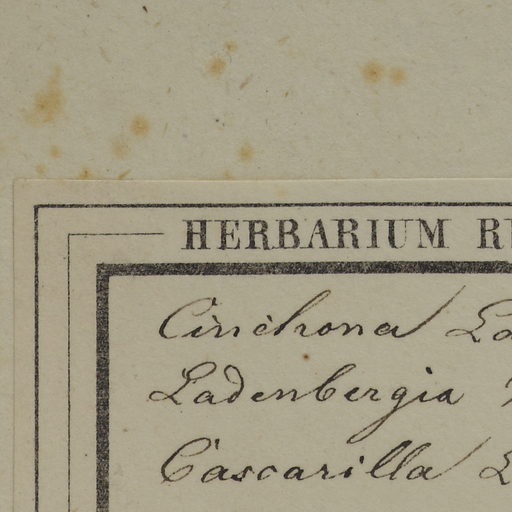 HERBARIUM
Cinchona
Ladenbergia
Cascarilla